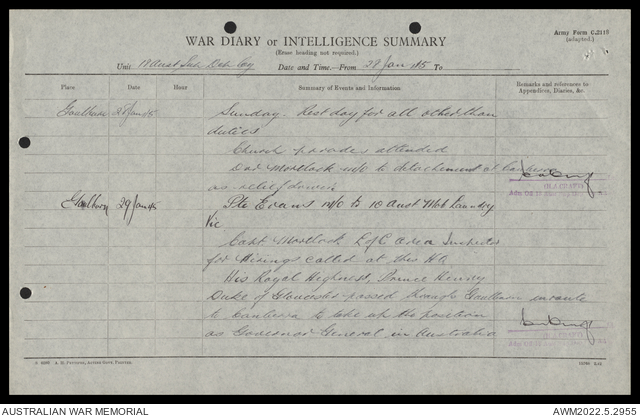 Army Form C.2118
(adapted.)
WAR DIARY or INTELLIGENCE SUMMARY
(Erase heading not required).
Unit Aust Sub Dep Coy Date and Time—From 28 Jan 45 To
Place Date Hour Summary of Events and Information Remarks and references to Appendices, Diaries, &c.
Goulburn 28 Jan 45 Sunday. Rest day for all other than
duties
Church parades attended
Mortlock m/o to detachment at
as relief
Goulburn 29 Jan 45 Pte Evans m/o to 10 Aust Mob Laundry
Vic
Capt Mortlock L of C area Inspector
for Hirings called at this HQ.
His Royal Highness, Prince Henry
Duke of Gloucester passed through Goulburn enroute
to Canberra to take up the position
as Governor General in Australia
AUSTRALIAN WAR MEMORIAL
AWM2022.5.2955